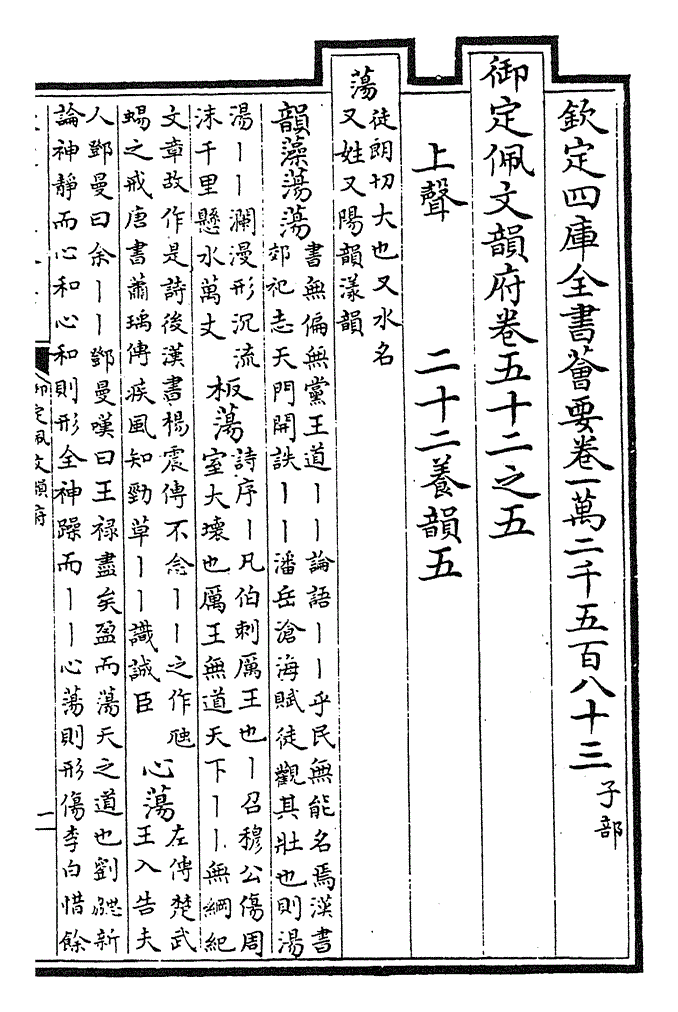 欽定四庫全書薈要卷一萬二千五百八十三 子部
御定佩文韻府卷五十二之五
上聲 二十二養韻五
蕩
徒朗切大也又水名
又姓又陽韻漾韻
韻藻蕩蕩
書無偏無黨王道丨丨論語丨丨乎民無能名焉漢書
郊祀志天門開詄丨丨潘岳滄海賦徒觀其壯也則湯
湯丨丨瀾漫形沉流
沫千里懸水萬丈
板蕩
詩序丨凡伯刺厲王也丨召穆公傷周
室大壞也厲王無道天下丨丨無綱紀
文章故作是詩後漢書楊震傳不念丨丨之作虺
蜴之戒唐書蕭瑀傳疾風知勁草丨丨識誠臣
心蕩
左傳楚武
王入告夫
人鄧曼曰余丨丨鄧曼嘆曰王禄盡矣盈而蕩天之道也劉勰新
論神靜而心和心和則形全神躁而丨丨心蕩則形傷李白惜餘
御定佩文韻府